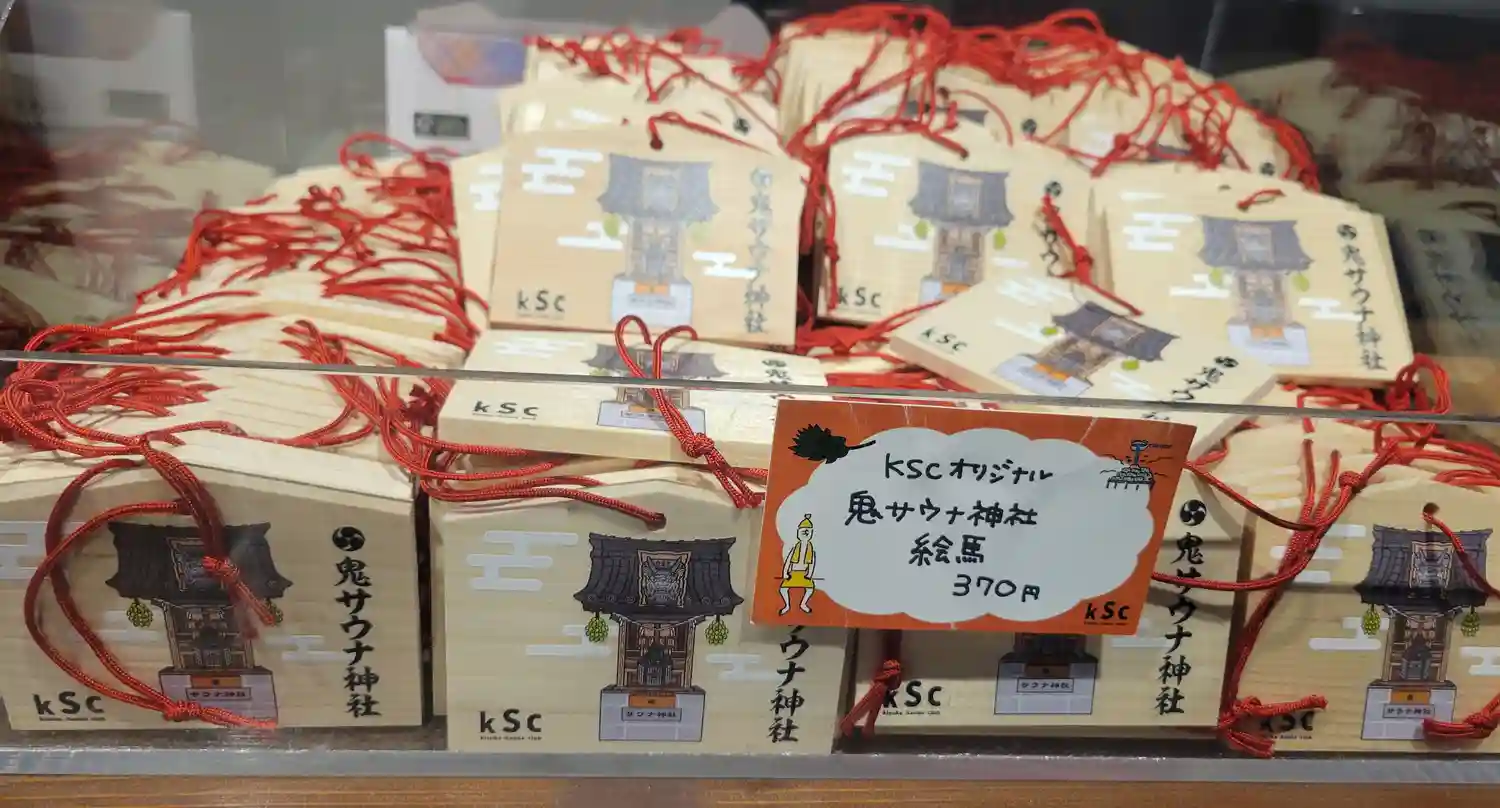 鬼サウナ神社
kSc
kSc
鬼サウナ神社
kSc
kSc
鬼サウナ
kSc
KSCオリジナル
鬼サウナ神社
絵馬
370円
kSc
鬼サウナ神社
サウナ神社
kSc
ウナ神社
サウナ神社
kSc
鬼サウナ神社
サウナ神社
kSc
サウナ神社